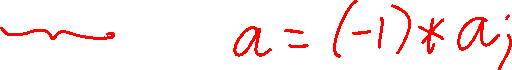 a = (-1) * a;